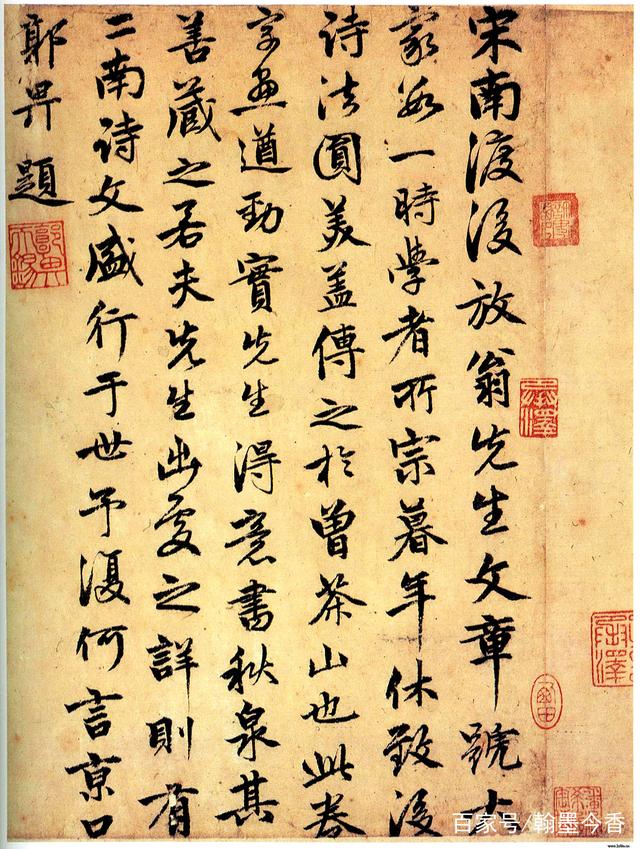 宋南渡後放翁先生文章號大
家為一時學者所宗暮年休致後
詩法圓美蓋傳之於曾茶山也此卷
字畫遒勁實先生得意書秋泉其
善藏之若夫先生出處之詳則有
二南詩文盛行于世予復何言京口
郭畀題
郭畀天錫
百家号/翰墨今香